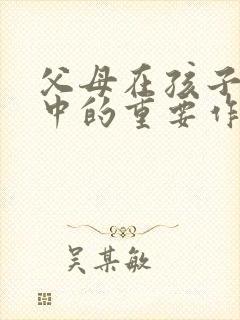 父母在孩子
中的重要作
吴某敏